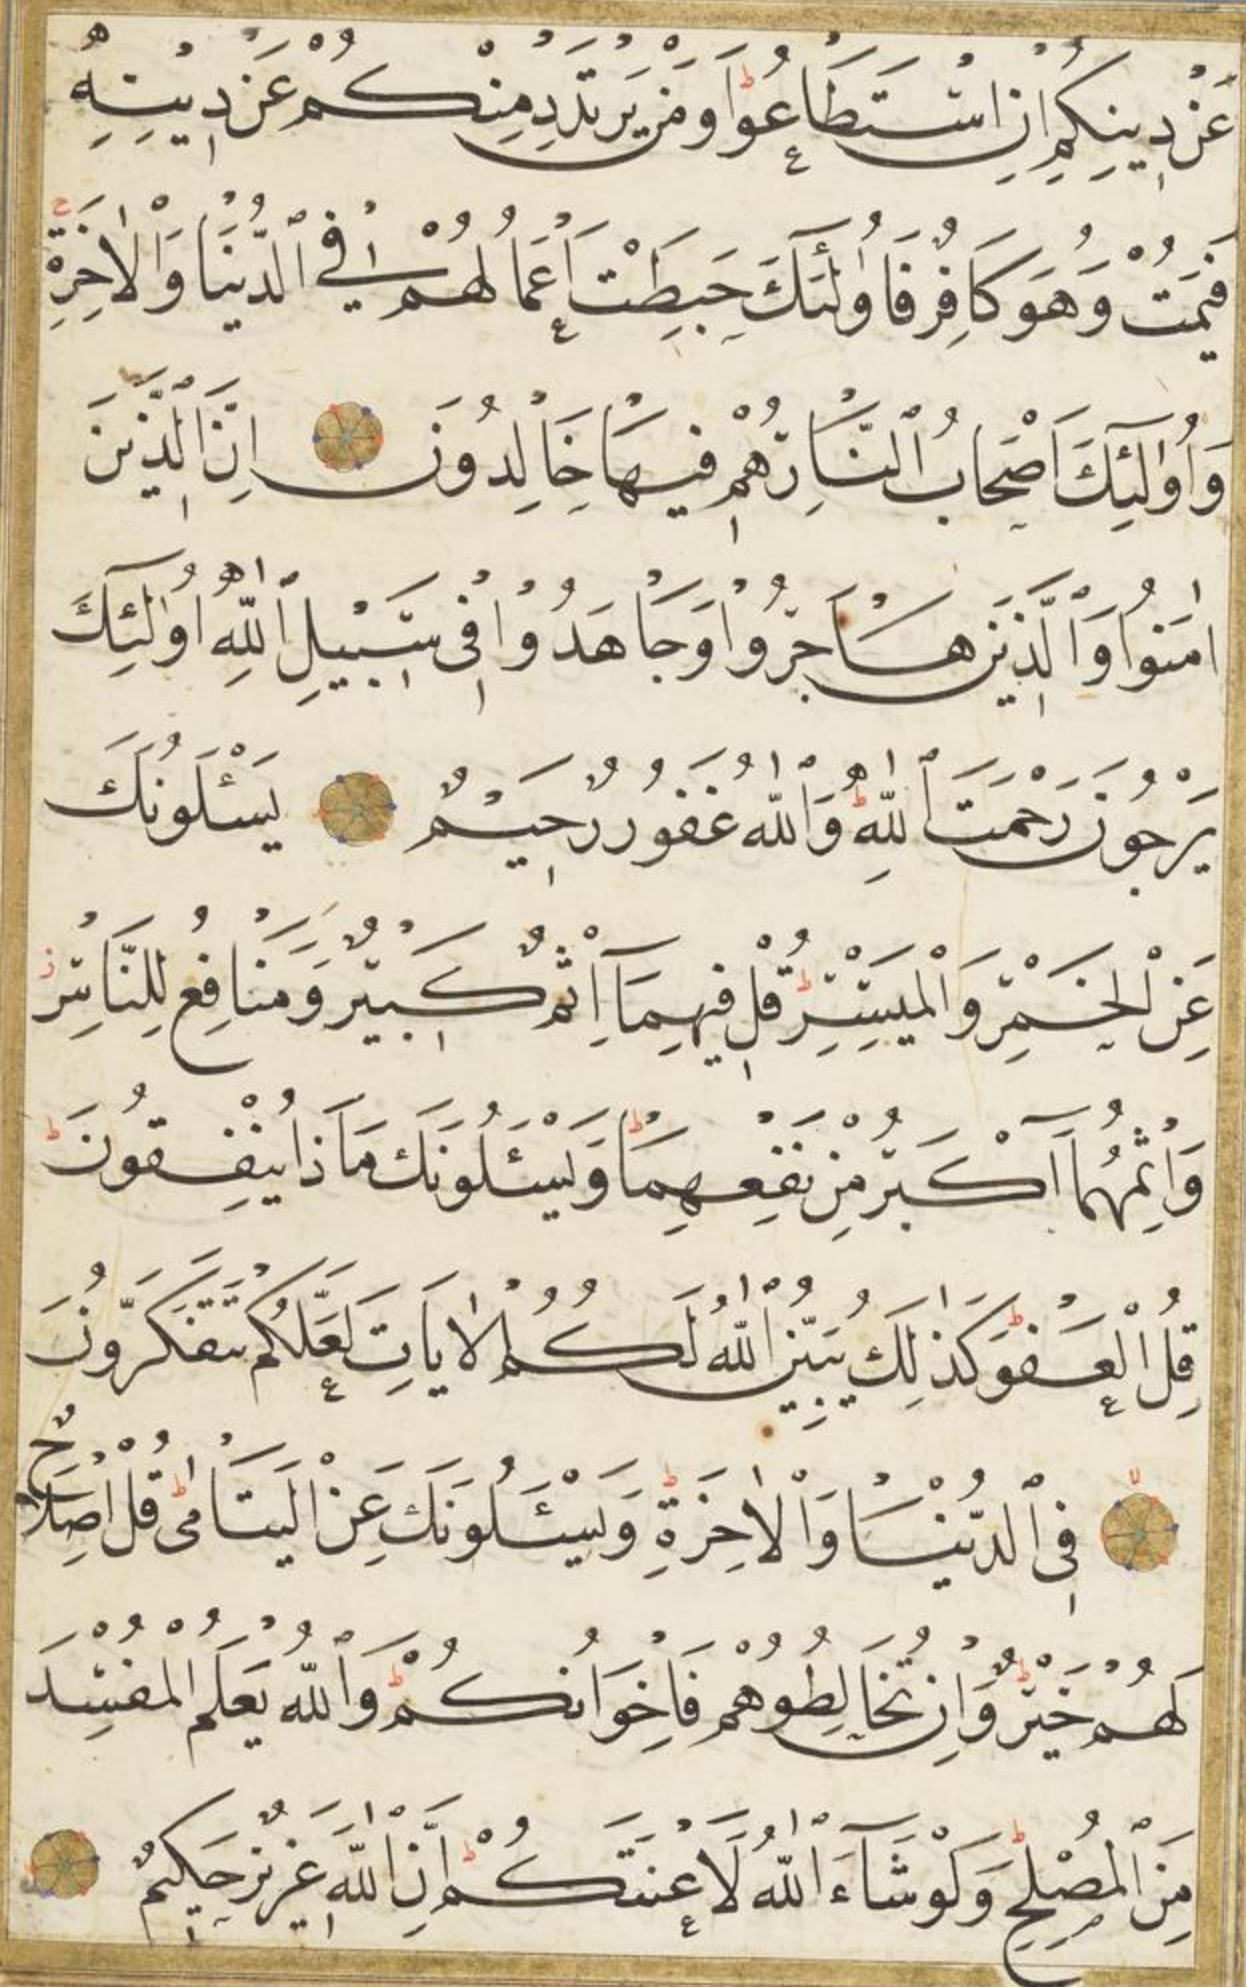 عَنْ دِينِكُمْ اِنِ اسْتَطَاعُوا وَمَنْ يَرْتَدِدْ مِنْكُمْ عَنْ دِينِهِ
فَيَمُتْ وَهُوَ كَافِرٌ فَاُولٰئِكَ حَبِطَتْ اَعْمَالُهُمْ فِي الدُّنْيَا وَالْاٰخِرَةِ
وَاُولٰئِكَ اَصْحَابُ النَّارِ هُمْ فِيهَا خَالِدُونَ اِنَّ الَّذِينَ
اٰمَنُوا وَالَّذِينَ هَاجَرُوا وَجَاهَدُوا فِي سَبِيلِ اللّٰهِ اُولٰئِكَ
يَرْجُونَ رَحْمَتَ اللّٰهِ وَاللّٰهُ غَفُورٌ رَحِيمٌ يَسْئَلُونَكَ
عَنِ الْخَمْرِ وَالْمَيْسِرِ قُلْ فِيهِمَا اِثْمٌ كَبِيرٌ وَمَنَافِعُ لِلنَّاسِ
وَاِثْمُهُمَا اَكْبَرُ مِنْ نَفْعِهِمَا وَيَسْئَلُونَكَ مَاذَا يُنْفِقُونَ
قُلِ الْعَفْوَ كَذٰلِكَ يُبَيِّنُ اللّٰهُ لَكُمُ الْاٰيَاتِ لَعَلَّكُمْ تَتَفَكَّرُونَ
فِي الدُّنْيَا وَالْاٰخِرَةِ وَيَسْئَلُونَكَ عَنِ الْيَتَامٰى قُلْ اِصْلَاحٌ
لَهُمْ خَيْرٌ وَاِنْ تُخَالِطُوهُمْ فَاِخْوَانُكُمْ وَاللّٰهُ يَعْلَمُ الْمُفْسِدَ
مِنَ الْمُصْلِحِ وَلَوْ شَاءَ اللّٰهُ لَاَعْنَتَكُمْ اِنَّ اللّٰهَ عَزِيزٌ حَكِيمٌ